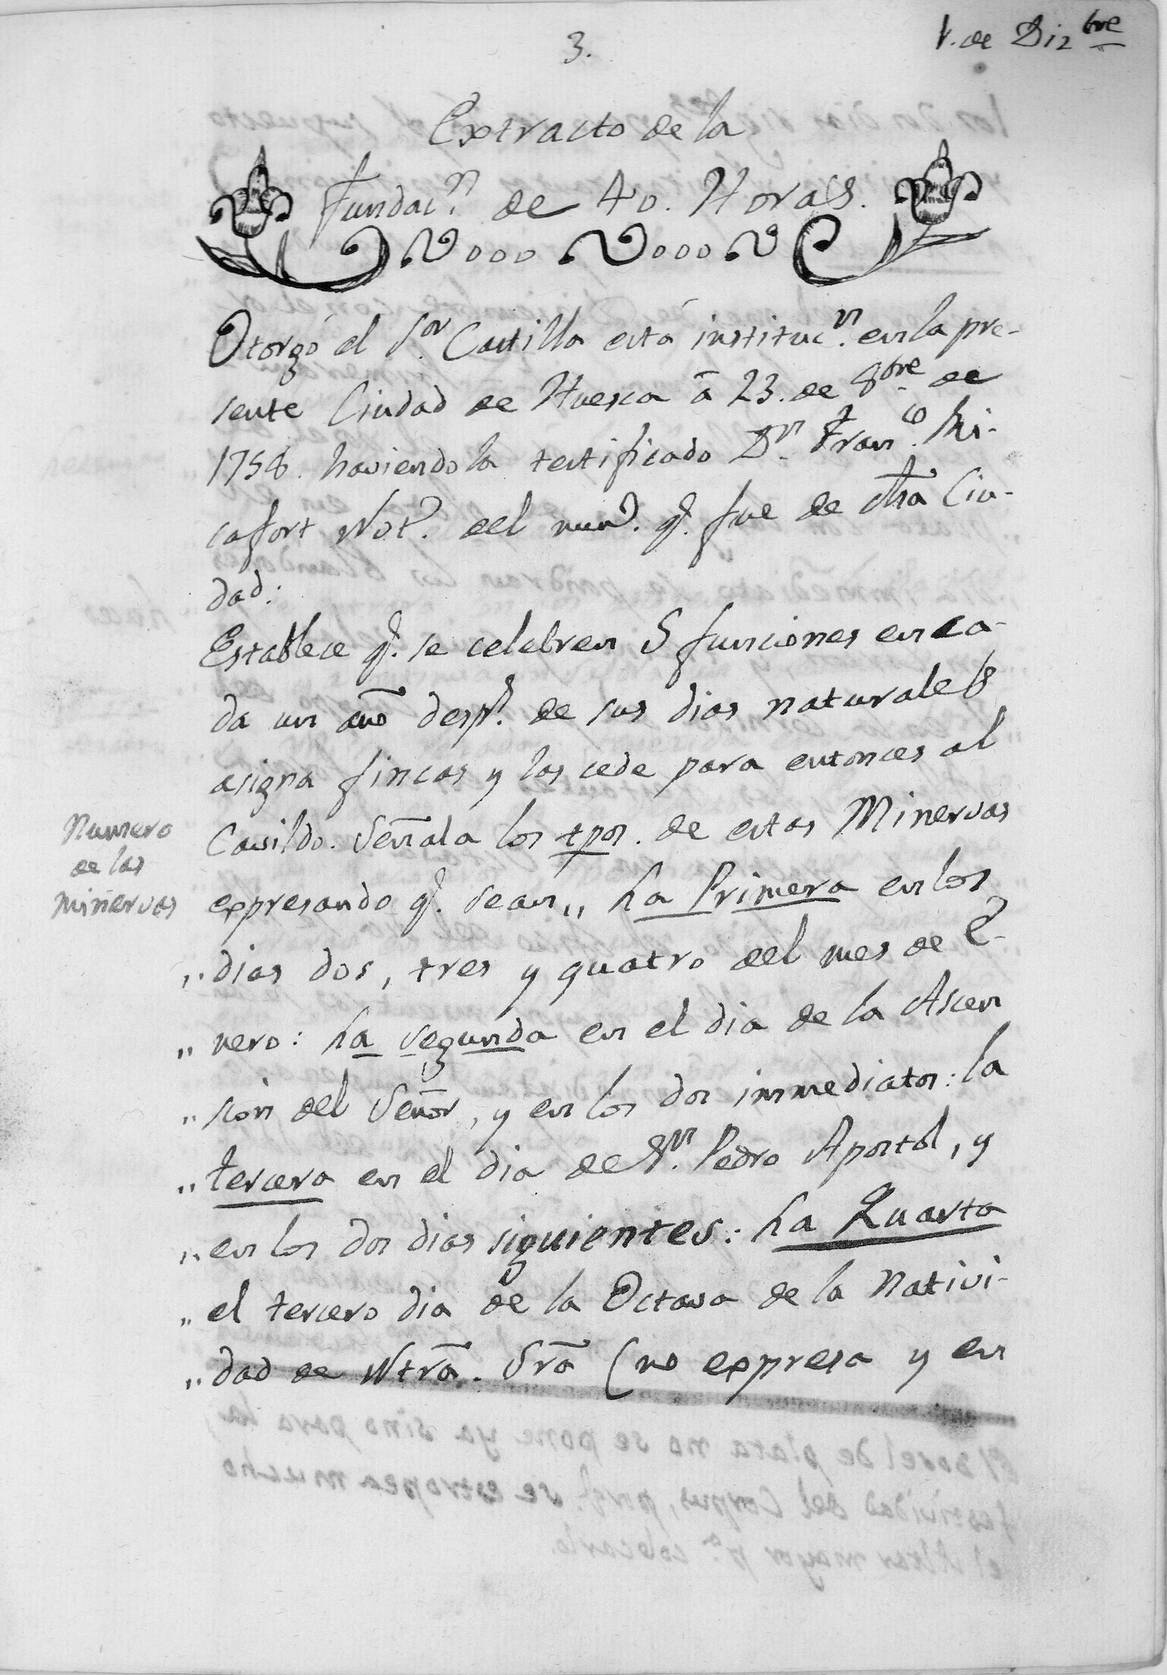 3.
1. de Dizbre
Extracto de la
Fundacn. de 40. Horas.
Otorgó el Sor. Castilla esta institucn. en la pre-
sente Ciudad de Huesca â 23. de 8bre de
1758. haviendola testificado Dn. Franco. Ri-
cafort Not. del num. q. fue de dha Ciu-
dad:
Establece q. se celebren 5 funciones en ca-
da un año desp.s de sus dias naturales
asigna fincas y las cede para entonces al
Cavildo. Señala los tpos. de estas Minervas
Numero
de las
Minervas
expresando q. sean,, La Primera en los
,, dias dos, tres y quatro del mes de E-
,, nero: La segunda en el dia de la Ascen
,, sion del Señor, y en los dos inmediatos: la
,, tercera en el dia de Sn. Pedro Apostol, y
,, en los dos dias siguientes: La Quarta
,, el tercero dia de la Octava de la Nativi-
,, dad de Ntrã. Srã (no expresa y en